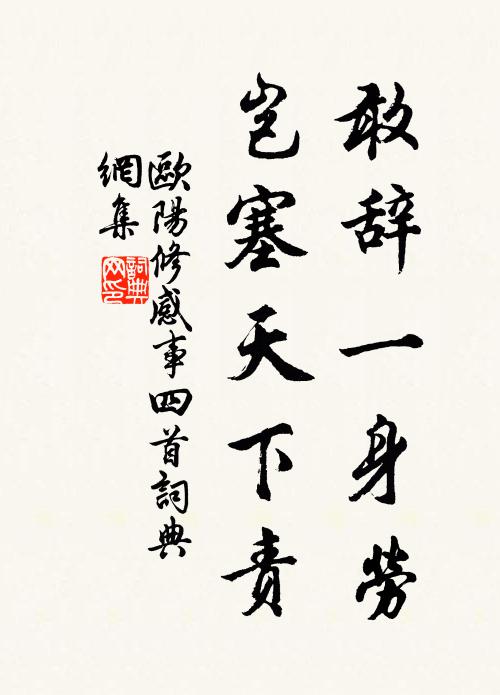 敢辞一身勞
岂塞天下责
歐陽修感事四首詞典
網集
詞典
网印